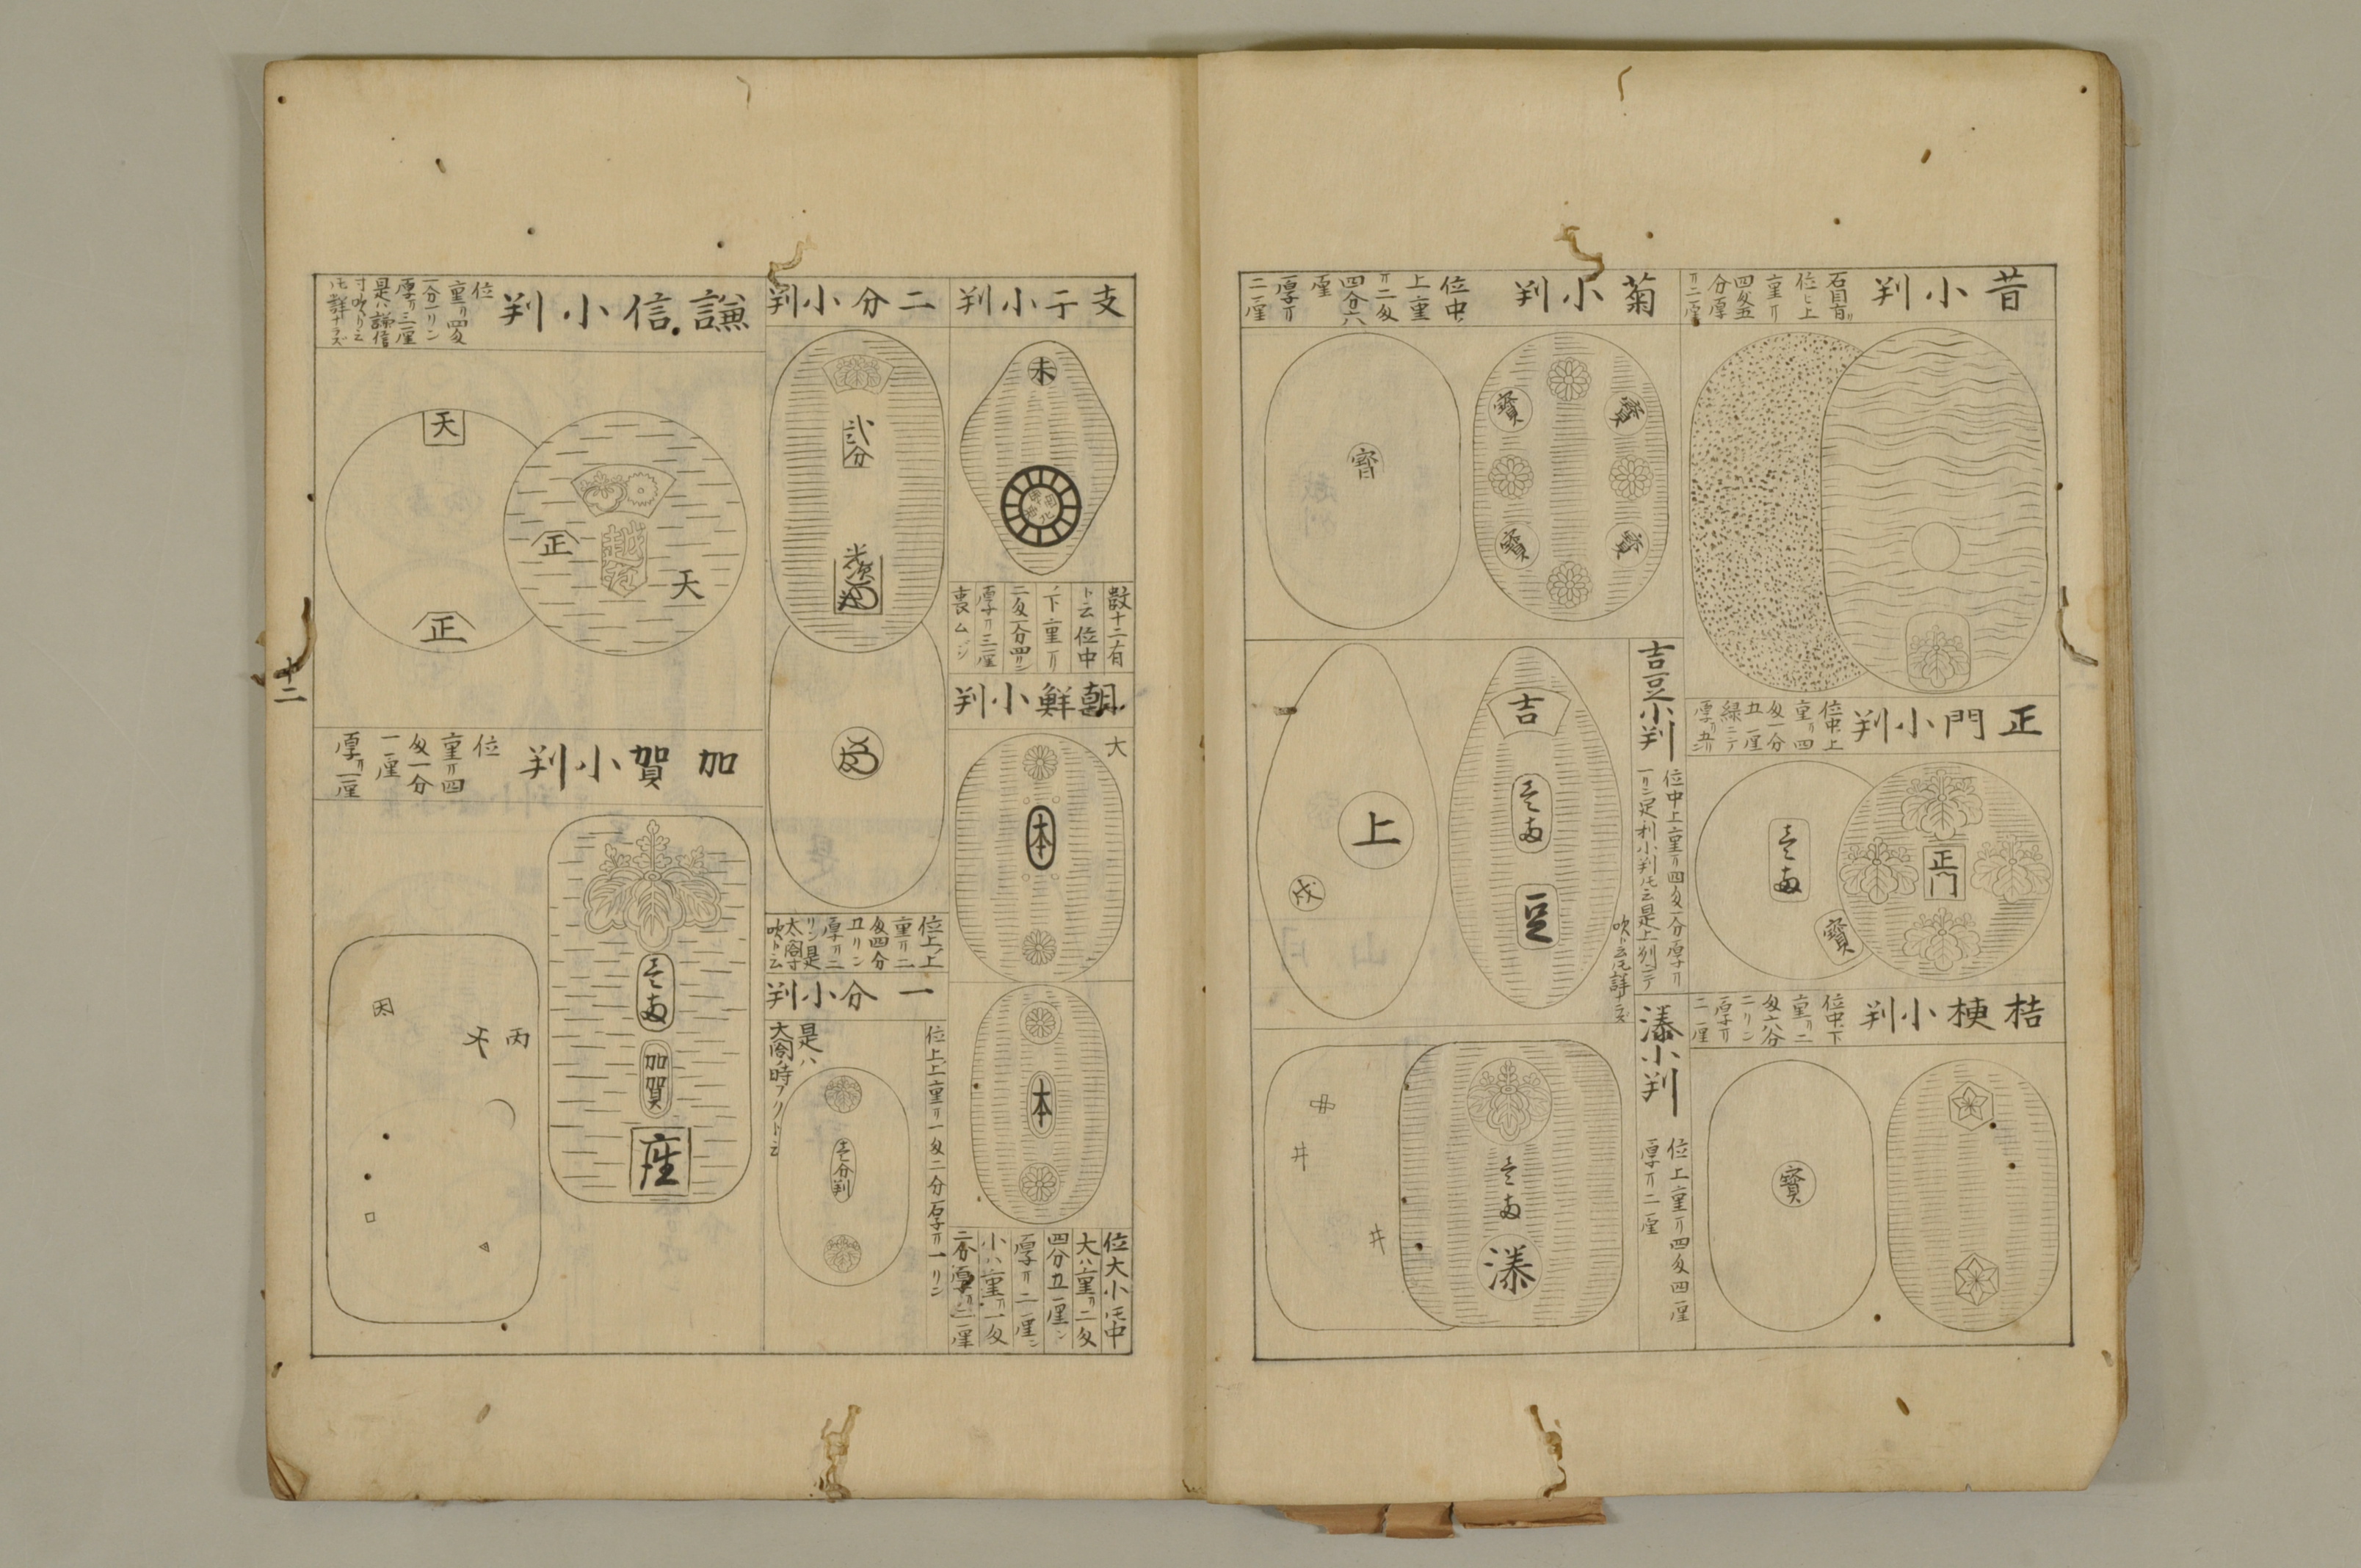 昔小判
石目有リ
位上上
重サ
四匁五
分厚
サ二厘
菊小判
位中
上重
サ二匁
四分六
厘
厚サ
二厘
寳
寳
寳
寳
寳
正門小判
位中上
重サ四
匁一分
五厘
緑ニテ
正門
壱両
寳
吉豆小判
位中上重サ四匁一分厚サ
一リン足利小判トモ云是上列ニテ
吹ト云トモ詳ナラズ
吉
壱両
豆
上
戌
桔梗小判
位中下
重サ二
匁六分
二リン
厚サ
二厘
寳
溙小判
位上重サ四匁四厘
厚サ二厘
壱両
溙
井
井
支干小判
未
数十二有
ト云位中
ノ下重サ
二匁一分四リン
厚サ三厘
裏ムジ
朝鮮小判
大
本
本
位大小トモ中
大ハ重サ二匁
四分五厘
厚サ二厘
小ハ重サ一匁
二分厚サ二厘
二分小判
弐分
光次
位上上
重サ二
匁四分
五リン
厚サ二
リン是
太閤
吹ト云
一分小判
位上上重サ一匁二分厚サ一リン
是ハ
大閤ノ時フクト云
壱分判
謙信小判
位
重サ四匁
一分一リン
厚サ三厘
是ハ謙信
寸吹ト云
トモ詳ナラズ
越
正
天
天
正
加賀小判
位
重サ四
匁一分
一厘
厚サ一厘
壱両
加賀
座
丙
十二